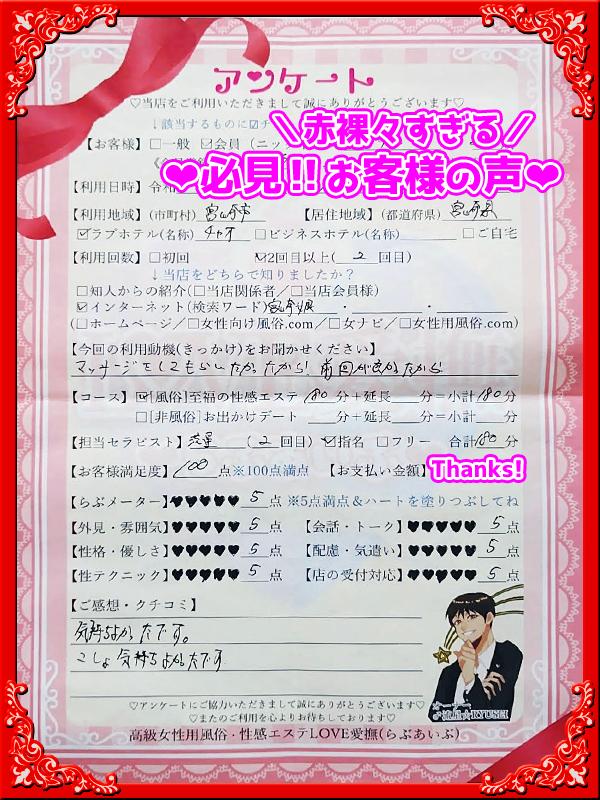 アンケート
♡当店をご利用いただきまして誠にありがとうございます♡
↓該当するものに☑チ
＼赤裸々すぎる／
【お客様】□一般 ☑会員（ニッ
❤必見!!お客様の声❤
【利用日時】令和
【利用地域】(市町村) 宮崎市 【居住地域】(都道府県) 宮崎県
☑ラブホテル(名称) チャオ □ビジネスホテル(名称) □ご自宅
【利用回数】□初回 ☑2回目以上( 2 回目)
↓当店をどちらで知りましたか？
□知人からの紹介(□当店関係者／□当店会員様)
☑インターネット(検索ワード)
(□ホームページ／□女性向け風俗.com／□女ナビ／□女性用風俗.com)
【今回の利用動機(きっかけ)をお聞かせください】
マッサージをしてもらいたかったから、前回が良かったから
【コース】☑[風俗]至福の性感エステ 180 分＋延長 分＝小計 180 分
□[非風俗]お出かけデート 分＋延長 分＝小計 分
【担当セラピスト】 ( 2 回目) ☑指名 □フリー 合計 180 分
【お客様満足度】 100 点※100点満点 【お支払い金額】 Thanks!
【らぶメーター】♥♥♥♥♥ 5 点 ※5点満点＆ハートを塗りつぶしてね
【外見・雰囲気】♥♥♥♥♥ 5 点 【会話・トーク】♥♥♥♥♥ 5 点
【性格・優しさ】♥♥♥♥♥ 5 点 【配慮・気遣い】♥♥♥♥♥ 5 点
【性テクニック】♥♥♥♥♥ 5 点 【店の受付対応】♥♥♥♥♥ 5 点
【ご感想・クチコミ】
気持ちよかったです。
こしょ気持ちよかったです
オーナー
♂流星☆RYUSEI
♡アンケートにご協力いただきまして誠にありがとうございます♡
♡またのご利用を心よりお待ちしております♡
高級女性用風俗・性感エステLOVE愛撫(らぶあいぶ)